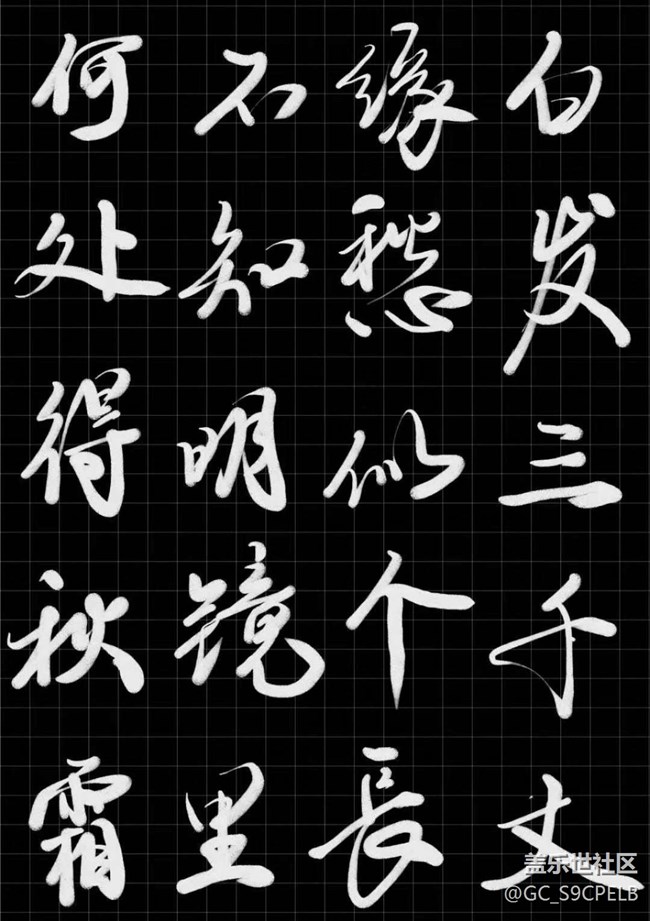 白发三千丈
缘愁似个長
不知明镜里
何处得秋霜
盖乐世社区
@GC_S9CPELB